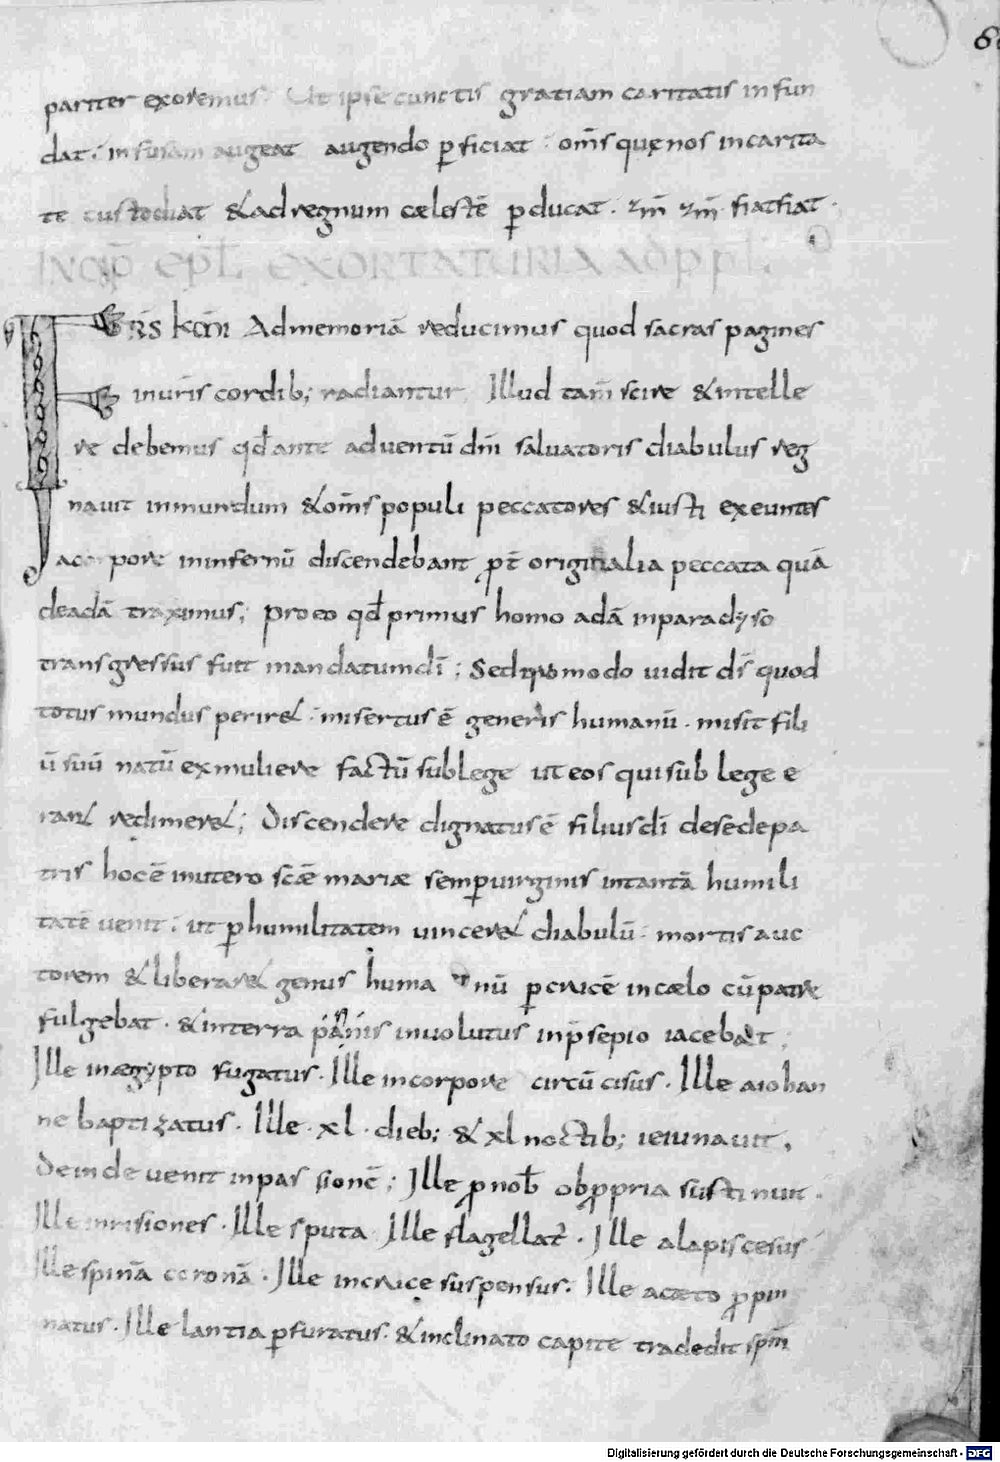 pariter exoremus. Ut ipse cunctis gratiam caritatis in fun
dat; infusam augeat augendo ꝑficiat; om̄s quę nos in carita
te custodiat & ad regnum cælestē ꝑducat. am̄ am̄ fiat fiat.
INCIP̄ EPL̄ EXORTATURIA AD PPL̄.
FR̄S KM̄I Ad memoriā reducimus quod sacras pagines
in ur̄is cordib; radiantur Illud tam̄ scire & intelle
re debemus qd̄ ante adventū dn̄i salvatoris diabulus reg
navit in mundum & om̄s populi peccatores & iusti exeuntes
a corpore in infernū discendebant ꝓt̄ originalia peccata quā
de adā traximus; pro eo qd̄ primus homo adā in paradyso
transgressus fuit mandatum dī; Sed quomodo uidit ds̄ quod
totus mundus perir&; misertus ē generis humanū. misit fili
ū suū natū ex muliere factū sub lege ut eos qui sub lege e
ran& redimer&; Discendere dignatus ē filius dī de sede pa
tris hoc ē in utero scǣ mariæ semper virginis in tantā humili
tatē venit; ut ꝑ humilitatem vincer& diabulū mortis auc
torem & liberar& genus huma nū ꝑ crucē in cælo cū patre
fulgebat. & in terra pannis involutus in p̄sepio iacebat;
Ille in ægypto fugatus. Ille in corpore circūcisus. Ille a iohan
ne baptizatus. Ille. xl. dieb; & xl noctib; ieiunauit.
Deinde venit in passionē; Ille ꝓ nob̄ obꝓpria sustinuit.
Ille inrisiones. Ille sputa Ille flagellat̄. Ille alapis cesus
Ille spineā coronā. Ille in cruce suspensus. Ille acæto ꝓpin
natus. Ille lantia ꝑfuratus. & inclinato capite tradedit spm̄
Digitalisierung gefördert durch die Deutsche Forschungsgemeinschaft - DFG